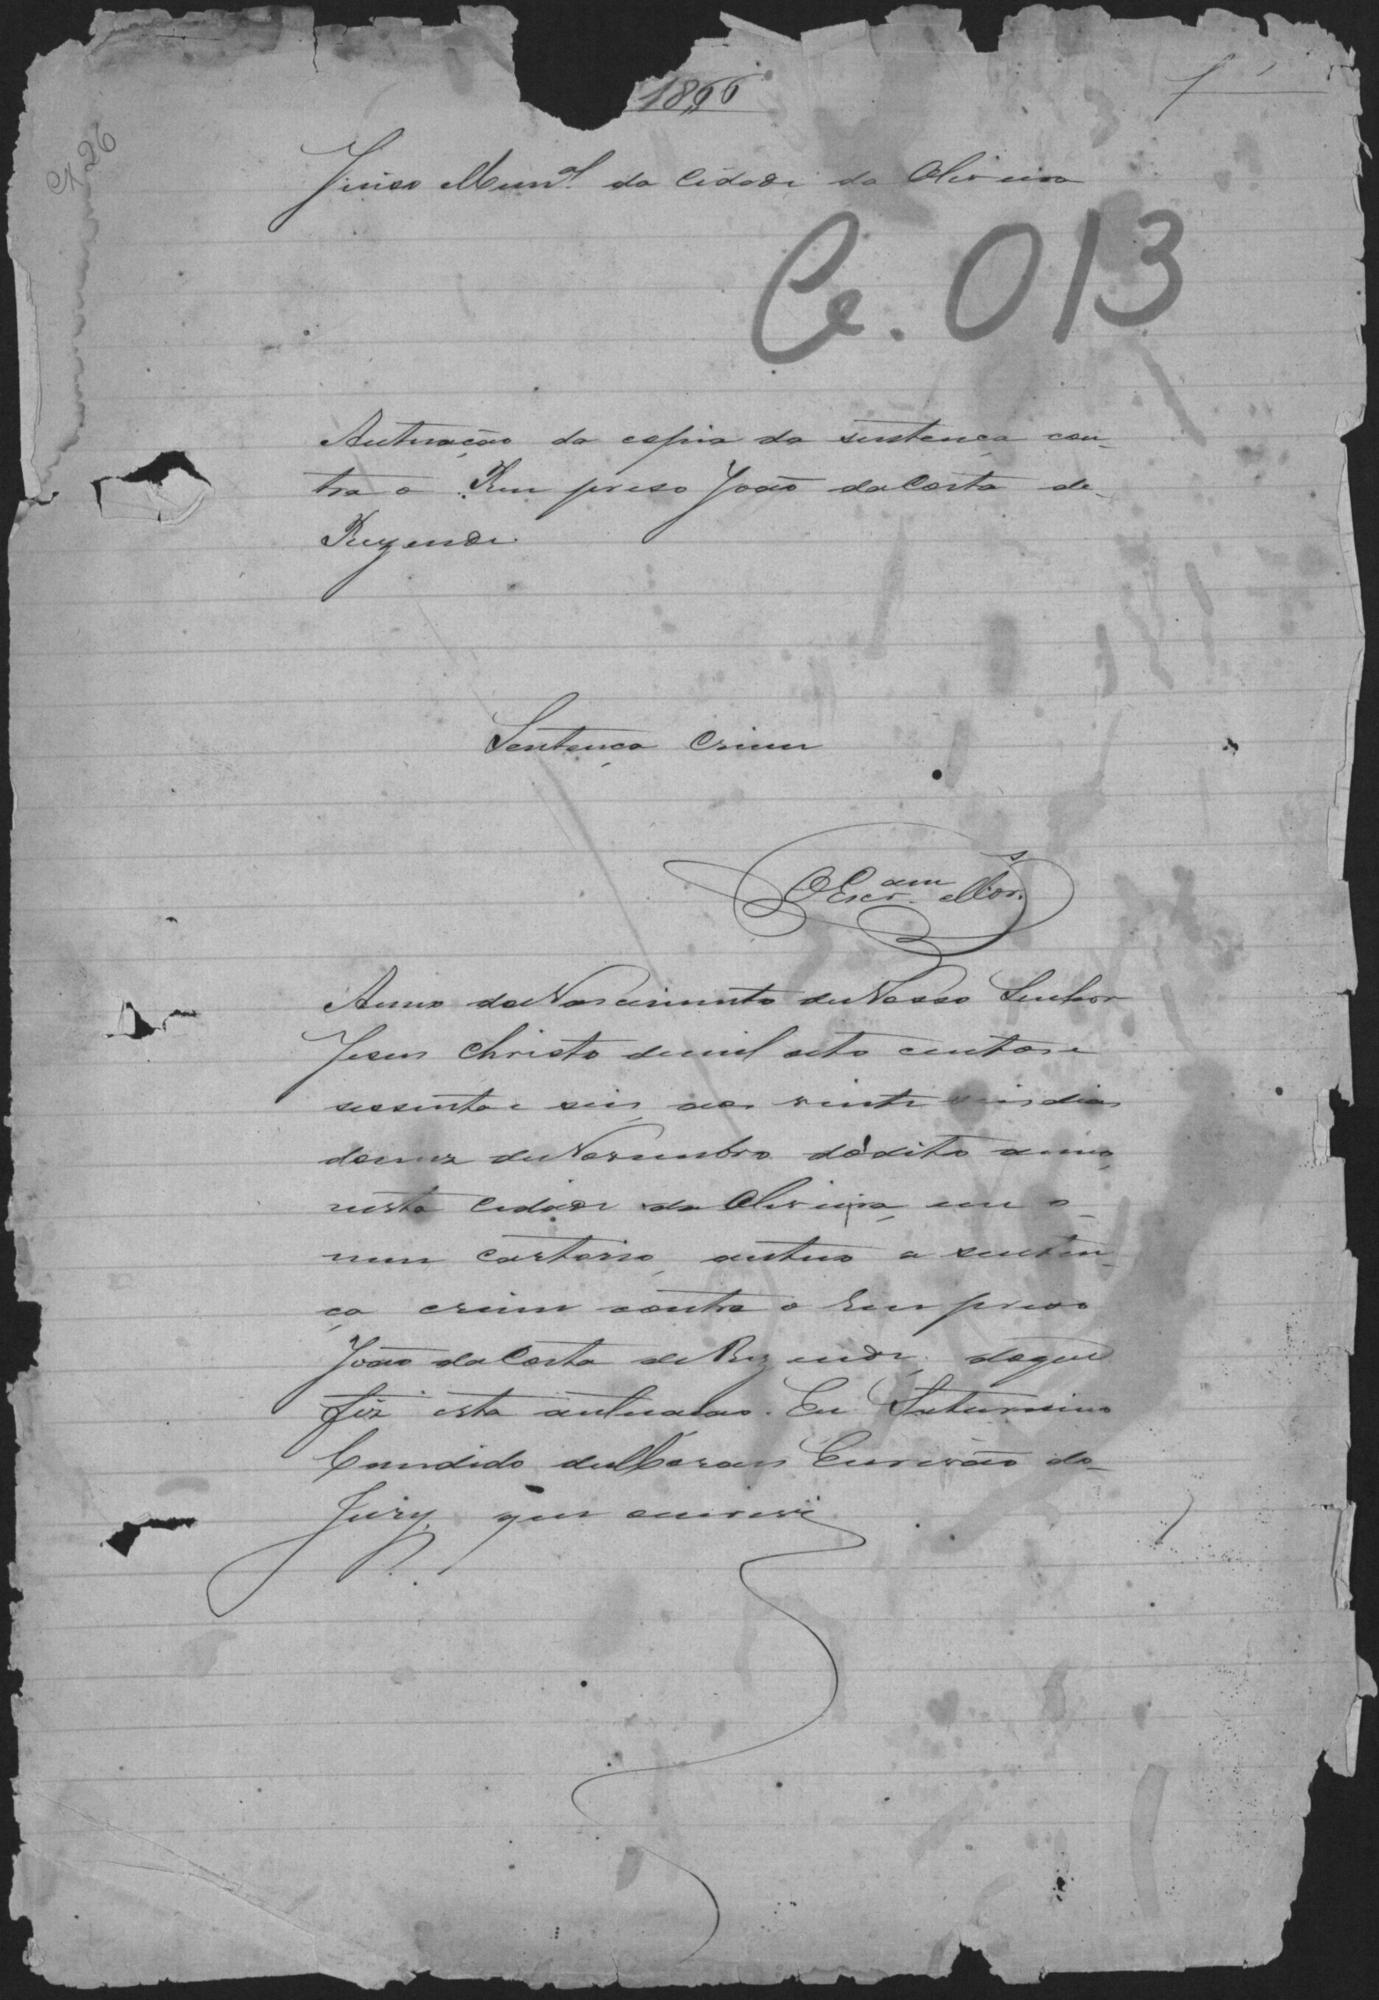 1866
Juiso Mun.al da Cidade da Oliveira
Ce. 013
Autuação da copia da sentença con-
tra o Reu preso João da Costa de
Rezende.
Sentença Crime
O Escr.am Mor.s
Anno do Nascimento de Nosso Senhor
Jesus Christo de mil oito centos e
sessenta e seis aos vinte seis dias
do mez de Novembro do dito anno,
nesta Cidade da Oliveira, em o
meu cartorio, autuo a senten-
ça crime contra o Reu preso
João da Costa de Rezende, do que
fiz esta autuacao. Eu Saturnino
Candido de Moraes Escrivão do
Jury, que escrevi